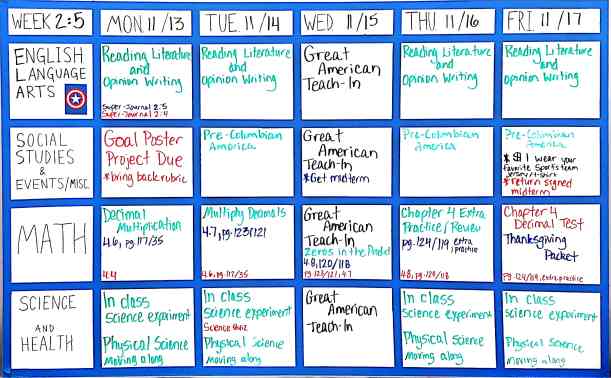 WEEK 2:5
MON 11/13
TUE 11/14
WED 11/15
THU 11/16
FRI 11/17
ENGLISH
LANGUAGE
ARTS
Reading Literature
and
Opinion Writing
Super-Journal 2:5
Super-Journal 2:4
Reading Literature
and
Opinion Writing
Great
American
Teach-In
Reading Literature
and
Opinion Writing
Reading Literature
and
Opinion Writing
SOCIAL
STUDIES
&
EVENTS/MISC.
Goal Poster
Project Due
*bring back rubric
Pre-Colombian
America
Great
American
Teach-In
*Get midterm
Pre-Colombian
America
Pre-Colombian
America
*$1 wear your
favorite Sports team
jersey/t-shirt
*return signed
midterm
MATH
Decimal
Multiplication
4.6, pg. 117/35
4.4
Multiply Decimals
4.7, pg. 123/121
4.6, pg. 117/35
Great
American
Teach-In
Zeros in the Product
4.8, 120/118
pg. 123/121, 4.7
Chapter 4 Extra
Practice/Review
pg. 124/119 extra
practice
4.8, pg.
Chapter 4
Decimal Test
Thanksgiving
Packet
pg. 124/119, extra practice
SCIENCE
AND
HEALTH
In class
science experiment
Physical Science
moving along
In class
science experiment
Science Quiz
Physical Science
moving along
Great
American
Teach-In
In class
science experiment
Physical Science
moving along
In class
science experiment
Physical Science
moving along